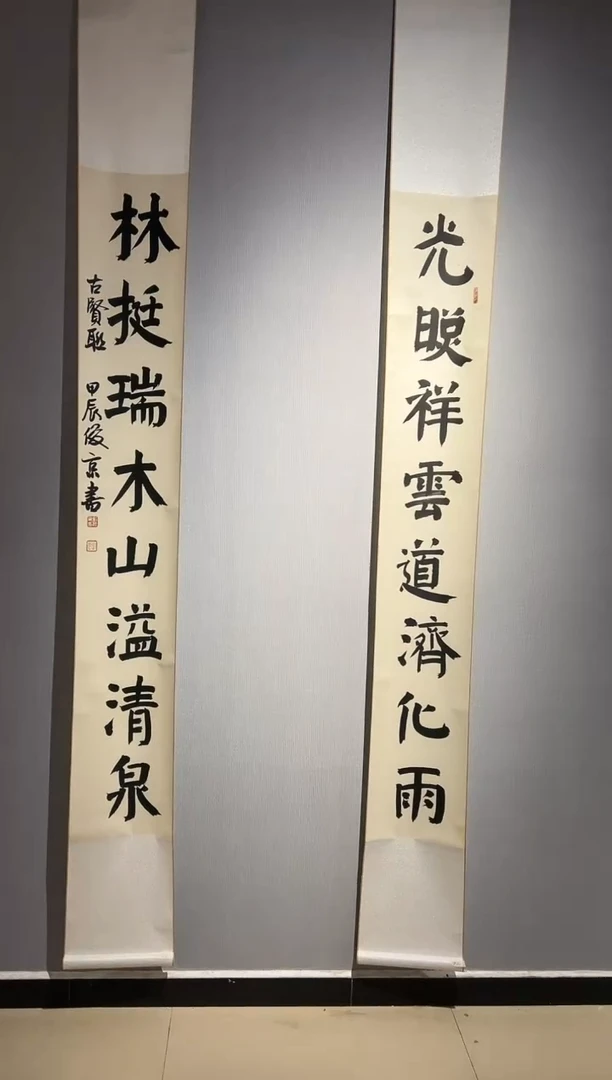 光祥雲道濟化雨
林挺瑞木山溢清泉
古賢聯 甲辰俊京書